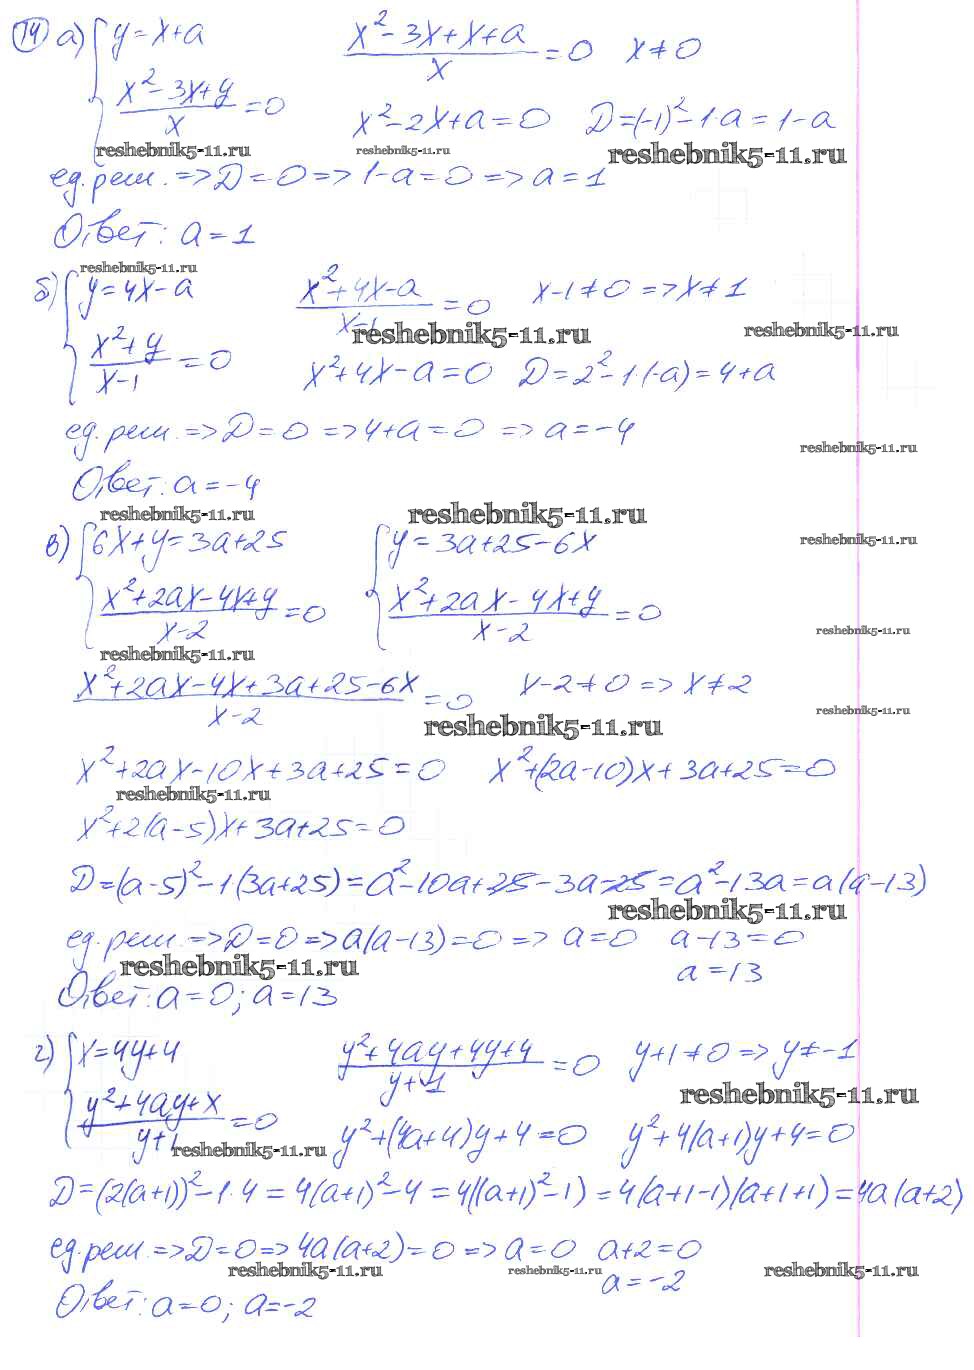 14 а) { y = x + a    (x² - 3x + x + a)/x = 0    x ≠ 0
(x² - 3x + y)/x = 0    x² - 2x + a = 0    D = (-1)² - 1·a = 1 - a
reshebnik5-11.ru    reshebnik5-11.ru    reshebnik5-11.ru
ед. реш. => D = 0 => 1 - a = 0 => a = 1
Ответ: a = 1
reshebnik5-11.ru
б) { y = 4x - a    (x² + 4x - a)/(x - 1) = 0    x - 1 ≠ 0 => x ≠ 1
reshebnik5-11.ru    reshebnik5-11.ru
(x² + y)/(x - 1) = 0    x² + 4x - a = 0    D = 2² - 1·(-a) = 4 + a
ед. реш. => D = 0 => 4 + a = 0 => a = -4
reshebnik5-11.ru
Ответ: a = -4
reshebnik5-11.ru    reshebnik5-11.ru
в) { 6x + y = 3a + 25    { y = 3a + 25 - 6x
reshebnik5-11.ru
(x² + 2ax - 4x + y)/(x - 2) = 0    (x² + 2ax - 4x + y)/(x - 2) = 0
reshebnik5-11.ru
reshebnik5-11.ru
(x² + 2ax - 4x + 3a + 25 - 6x)/(x - 2) = 0    x - 2 ≠ 0 => x ≠ 2
reshebnik5-11.ru    reshebnik5-11.ru
x² + 2ax - 10x + 3a + 25 = 0    x² + (2a - 10)x + 3a + 25 = 0
reshebnik5-11.ru
x² + 2(a - 5)x + 3a + 25 = 0
D = (a - 5)² - 1(3a + 25) = a² - 10a + 25 - 3a - 25 = a² - 13a = a(a - 13)
reshebnik5-11.ru
ед. реш. => D = 0 => a(a - 13) = 0 => a = 0    a - 13 = 0
reshebnik5-11.ru    a = 13
Ответ: a = 0; a = 13
г) { x = 4y + 4    (y² + 4ay + 4y + 4)/(y + 1) = 0    y + 1 ≠ 0 => y ≠ -1
reshebnik5-11.ru
(y² + 4ay + x)/(y + 1) = 0    y² + (4a + 4)y + 4 = 0    y² + 4(a + 1)y + 4 = 0
reshebnik5-11.ru
D = (2(a + 1))² - 1·4 = 4(a + 1)² - 4 = 4((a + 1)² - 1) = 4(a + 1 - 1)(a + 1 + 1) = 4a(a + 2)
ед. реш. => D = 0 => 4a(a + 2) = 0 => a = 0    a + 2 = 0
reshebnik5-11.ru    reshebnik5-11.ru    reshebnik5-11.ru
a = -2
Ответ: a = 0; a = -2